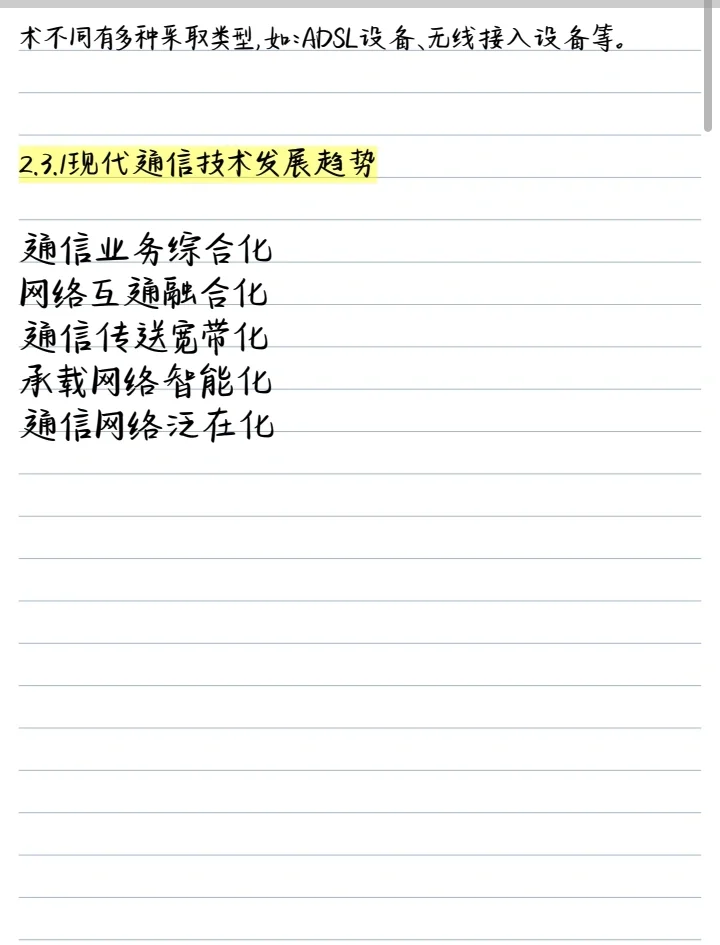 术不同有多种采取类型,如:ADSL设备、无线接入设备等。
2.3.1现代通信技术发展趋势
通信业务综合化
网络互通融合化
通信传送宽带化
承载网络智能化
通信网络泛在化